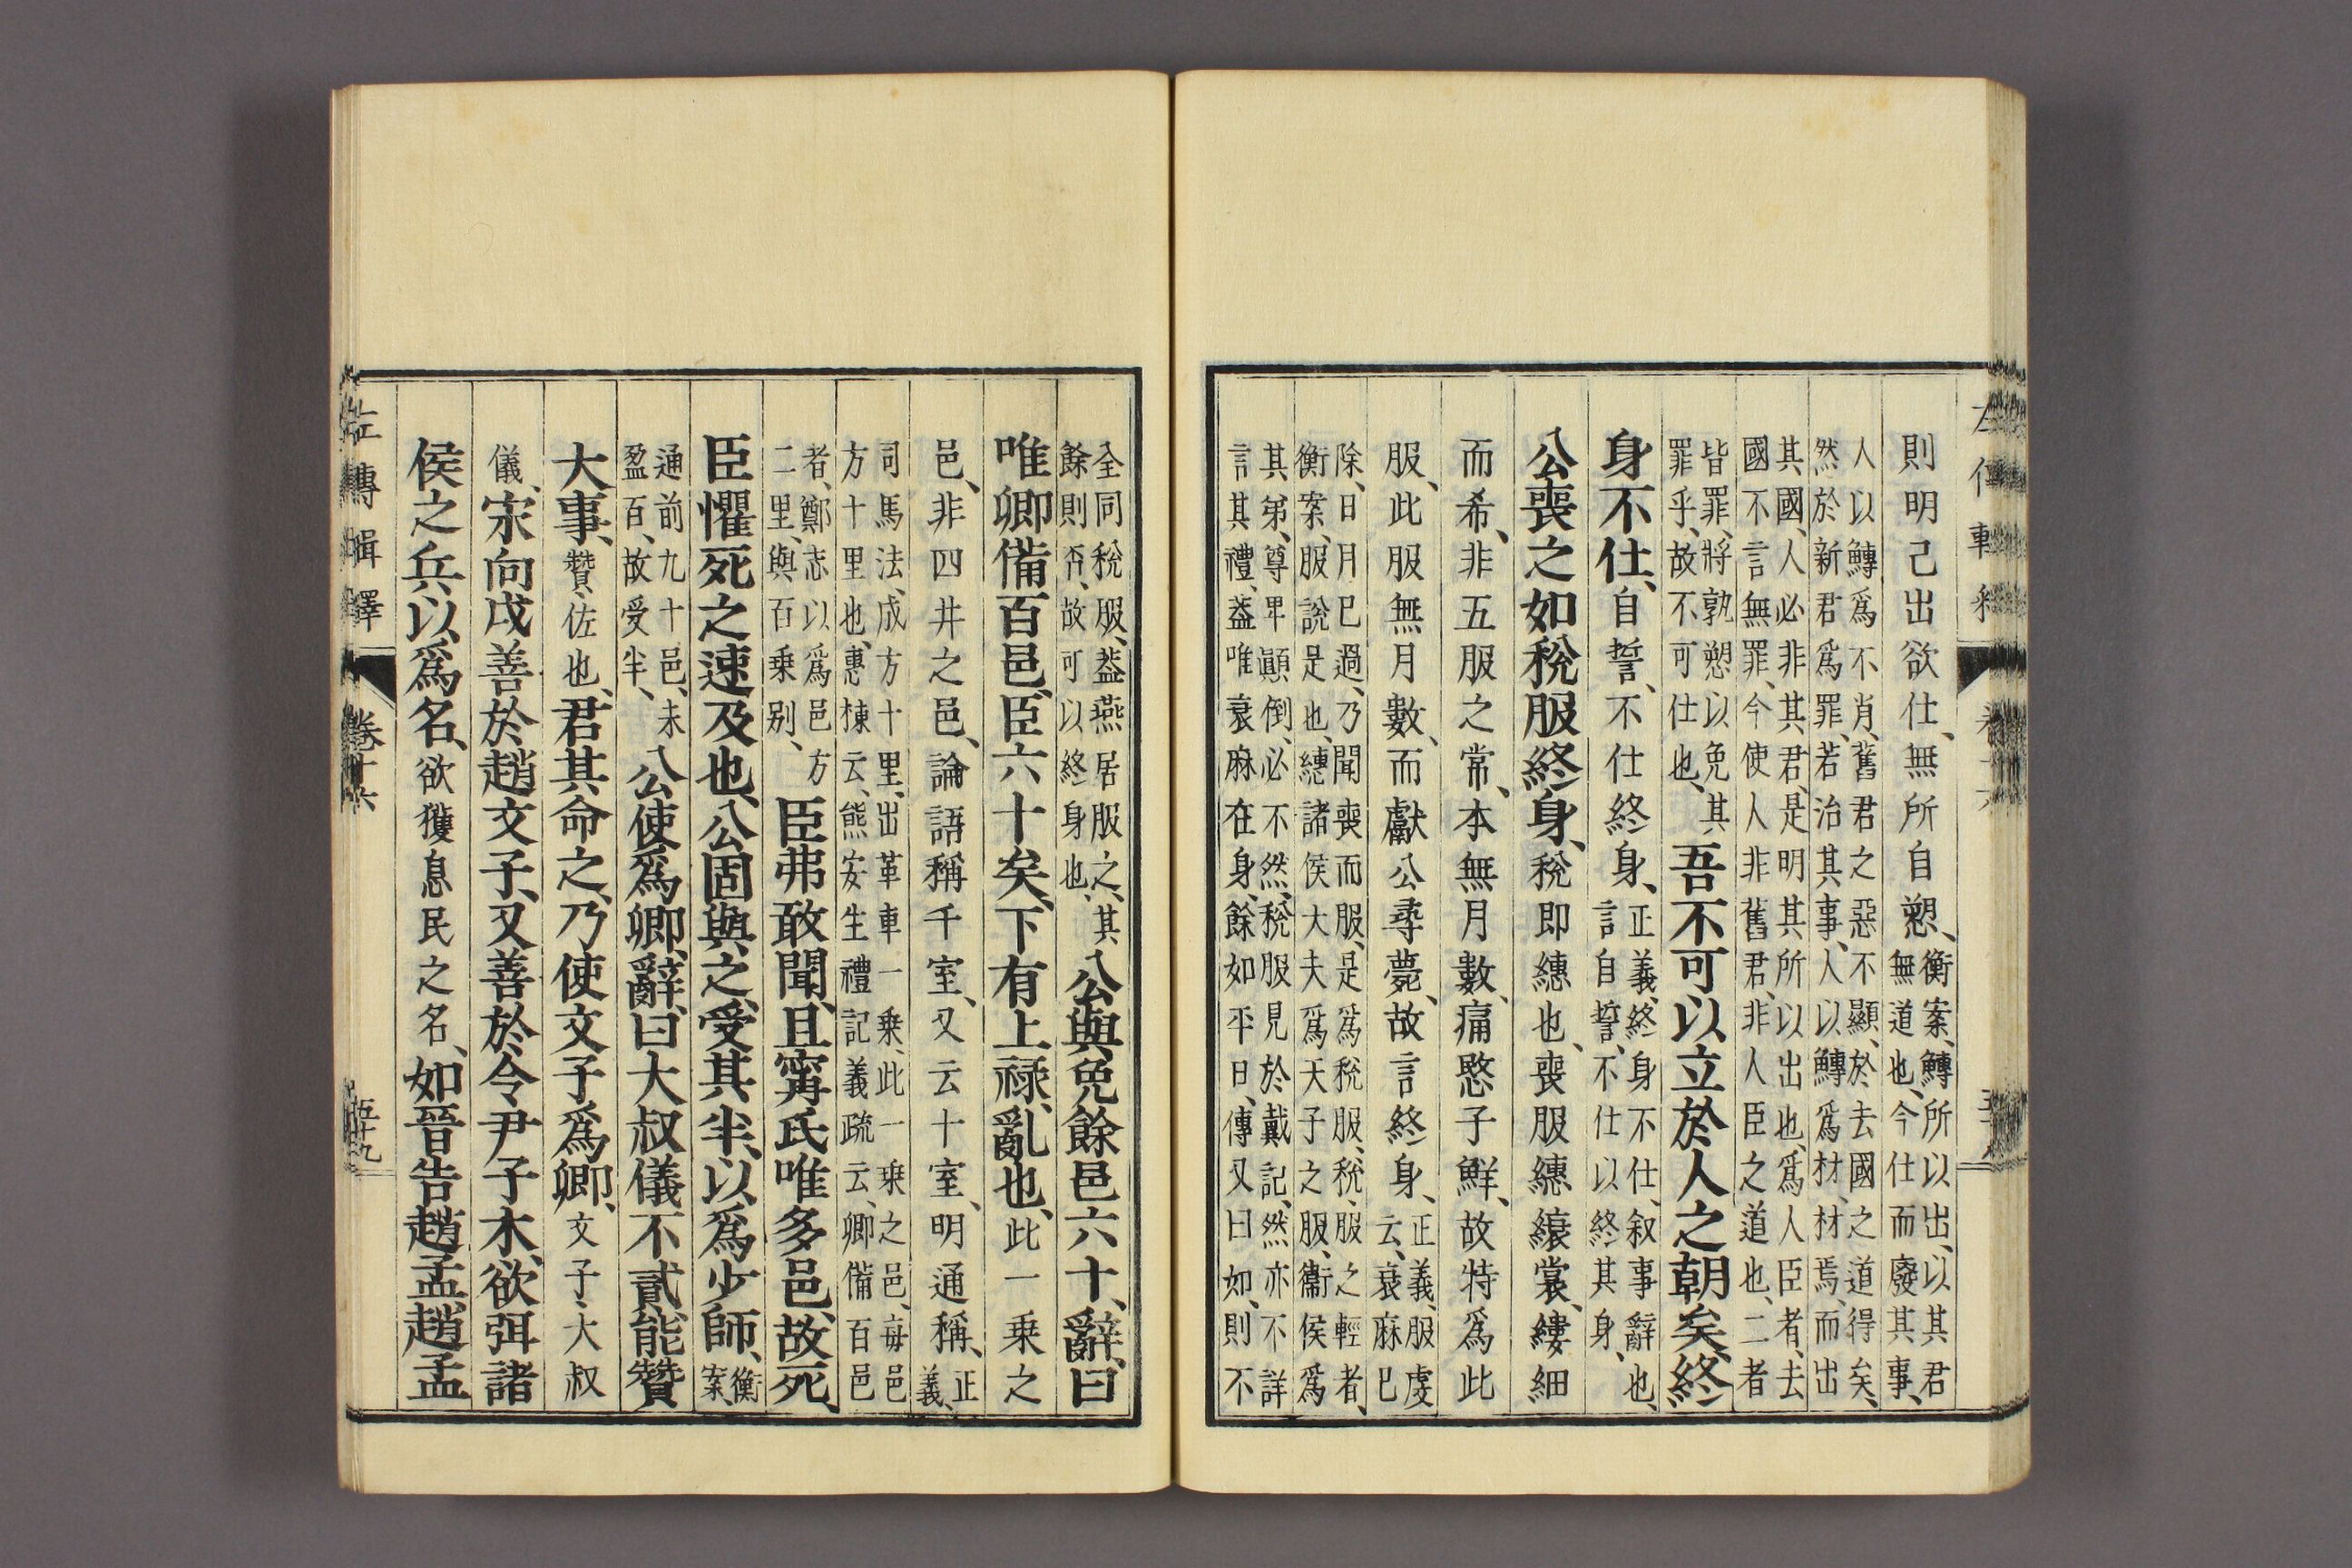 則明己出欲仕、無所自愬、衡案、鱄所以出、以其君
無道也、今仕而廢其事、
人以鱄爲不肖、舊君之惡不顯、於去國之道得矣、
然於新君爲罪、若治其事、人以鱄爲材、材焉而出
其國、人必非其君、是明其所以出也、爲人臣者、去
國不言無罪、今使人非舊君、非人臣之道也、二者
皆罪、將孰愬以免其
罪乎、故不可仕也、吾不可以立於人之朝矣、終
身不仕、自誓、不仕終身、正義、終身不仕、叙事辭也、
言自誓、不仕以終其身、
公喪之如稅服終身、稅即繐也、喪服繐縗裳、縷細
而希、非五服之常、本無月數、痛愍子鮮、故特爲此
服、此服無月數、而獻公尋薨、故言終身、正義、服虔
云、衰麻已
除、日月已過、乃聞喪而服、是爲稅服、稅、服之輕者、
衡案、服說是也、繐諸侯大夫爲天子之服、衞侯爲
其弟、尊卑顚倒、必不然、稅服見於戴記、然亦不詳
言其禮、葢唯衰麻在身、餘如平日、傳又曰如、則不
仝同稅服、葢燕居服之、其
餘則否、故可以終身也、公與免餘邑六十、辭、曰
唯卿備百邑、臣六十矣、下有上祿、亂也、此一乗之
邑、非四井之邑、論語稱千室、又云十室、明通稱、正
義、
司馬法、成方十里、出革車一乗、此一乗之邑、毎邑
方十里也、惠棟云、熊安生禮記義疏云、卿備百邑
者、鄭志以爲邑方
二里、與百乗别、臣弗敢聞、且甯氏唯多邑、故死、
臣懼死之速及也、公固與之、受其半、以爲少師、衡
案、
通前九十邑、未
盈百、故受半、公使爲卿、辭、曰大叔儀不貳、能贊
大事、贊、佐也、君其命之、乃使文子爲卿、文子、大叔
儀、宋向戌善於趙文子、又善於令尹子木、欲弭諸
侯之兵、以爲名、欲獲息民之名、如晉告趙孟、趙孟
左傳輯釋 卷十六 五十九